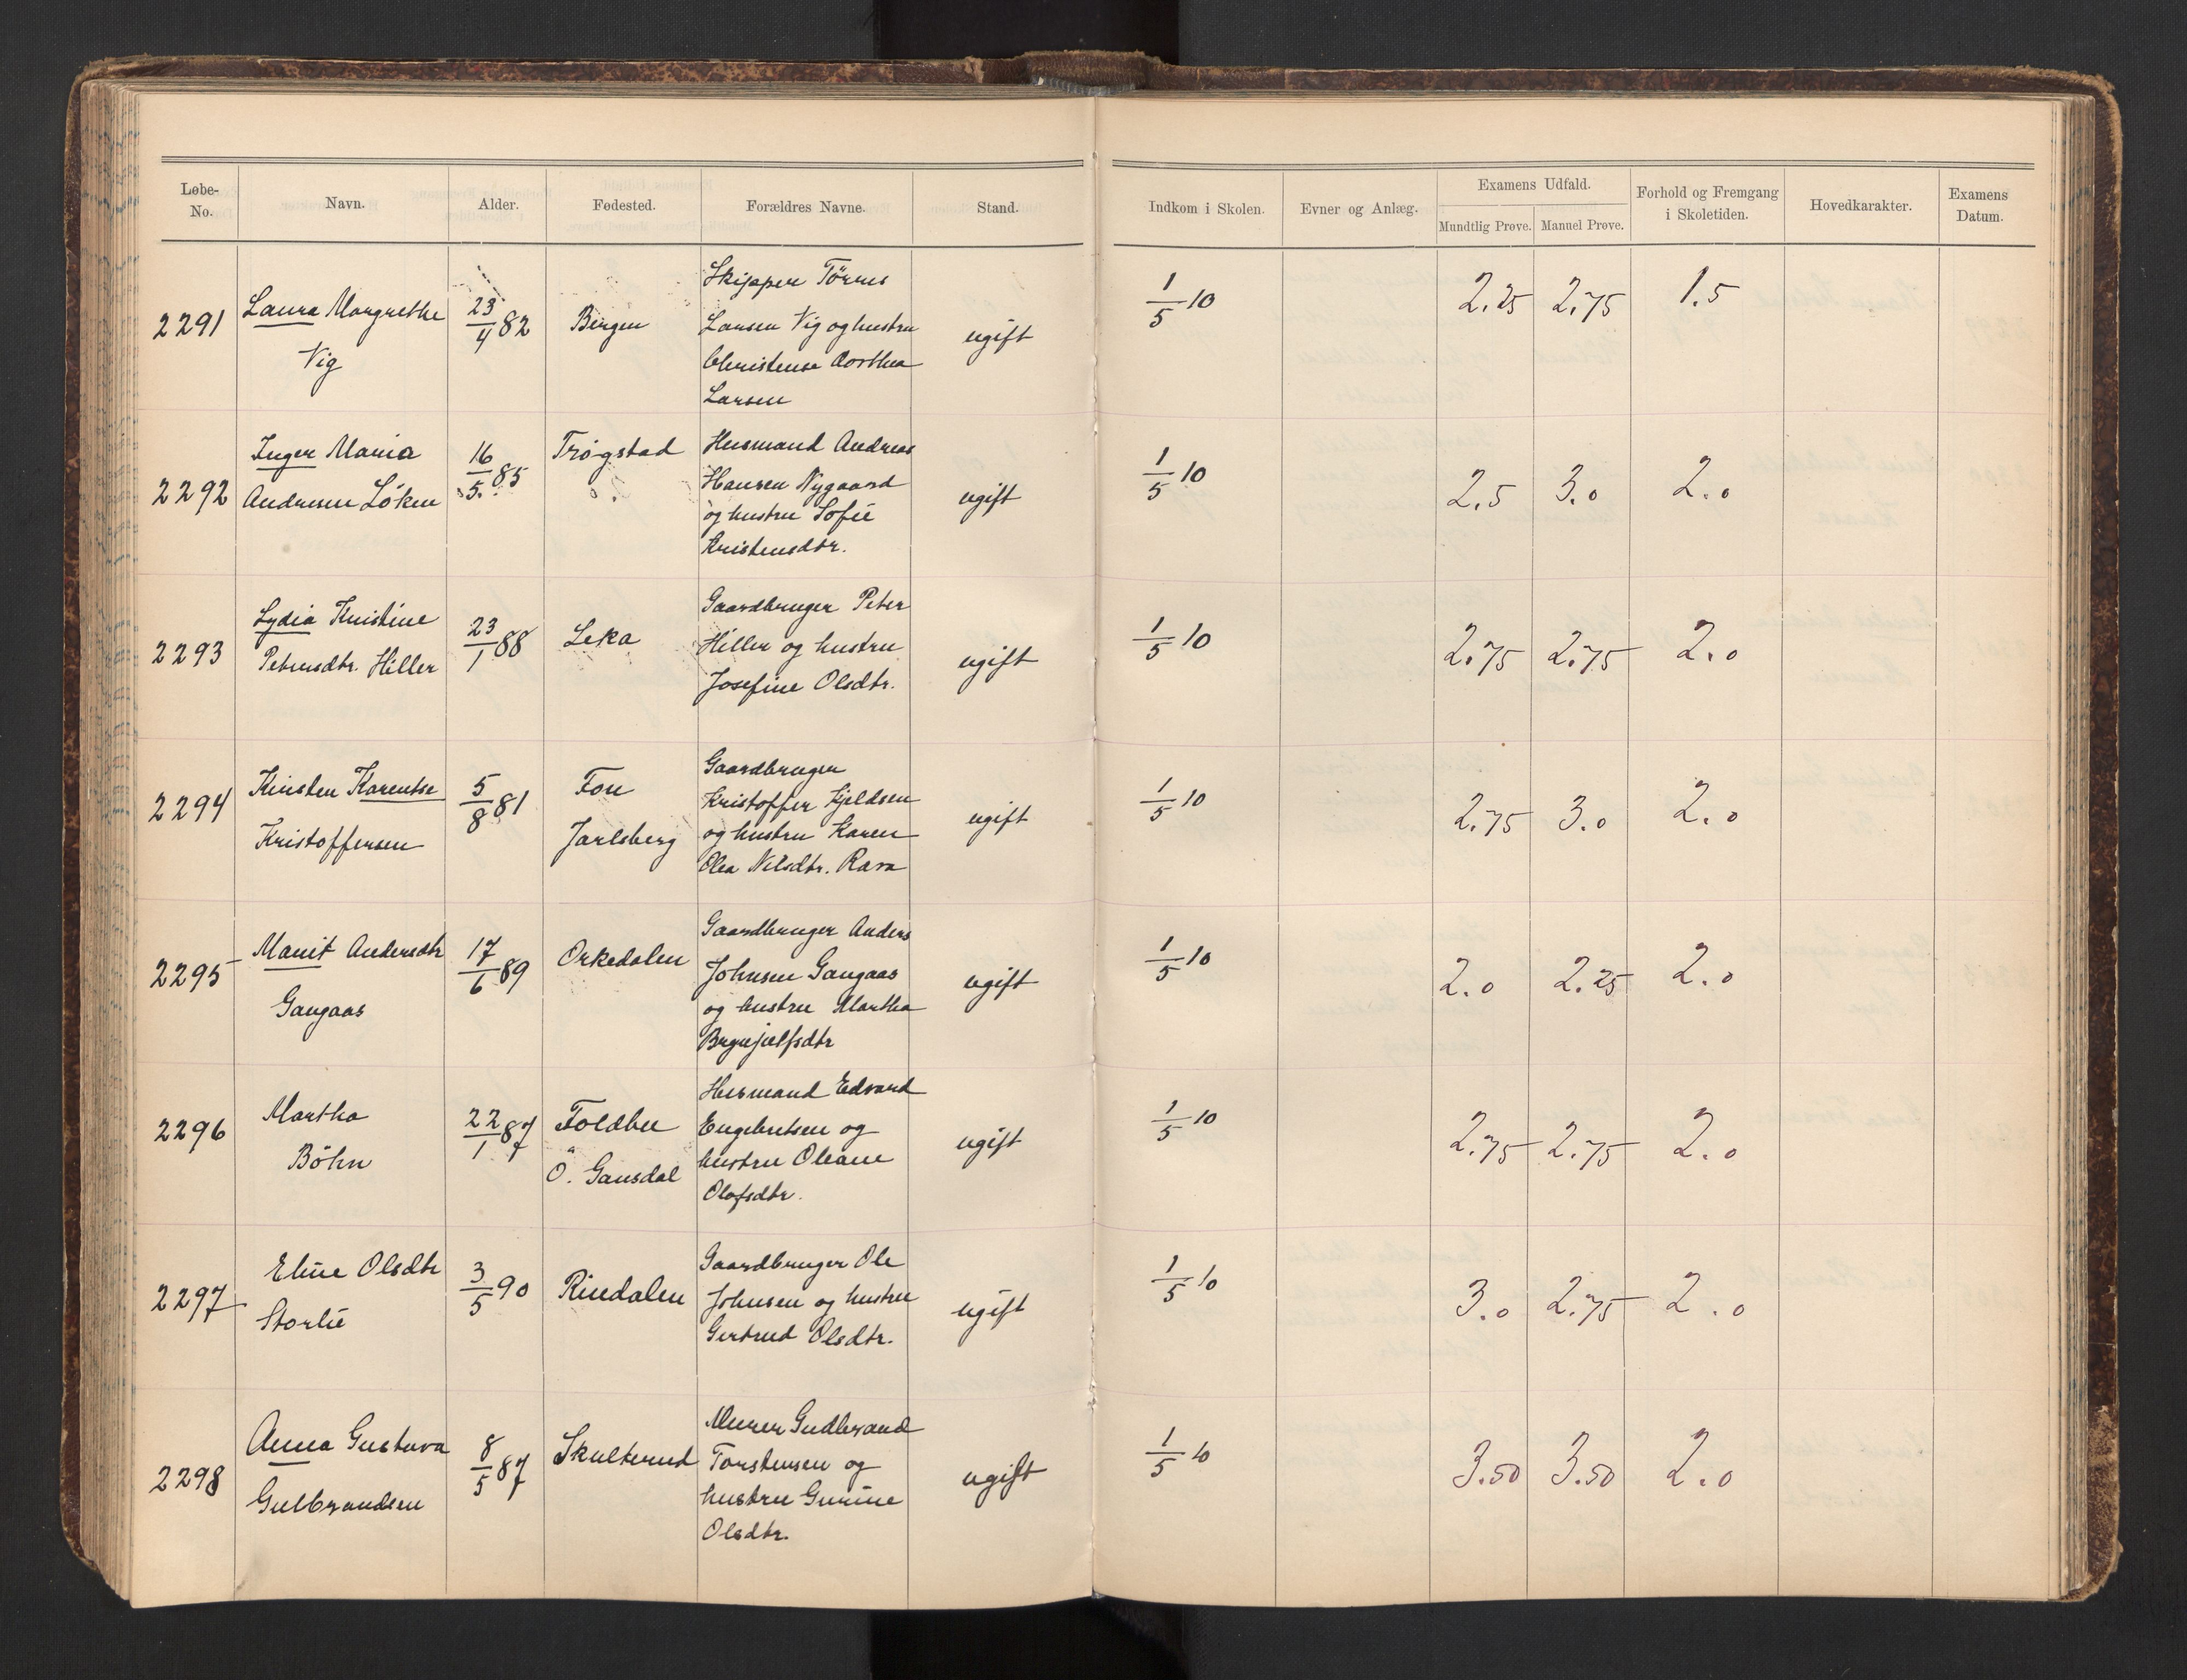 Løbe-
No.
Navn.
Alder.
Fødested.
Forældres Navne.
Stand.
Indkom i Skolen.
Evner og Anlæg.
Examens Udfald.
Mundtlig Prøve.
Manuel Prøve.
Forhold og Fremgang
i Skoletiden.
Hovedkarakter.
Examens
Datum.
2291
Laura Margrethe
Vig
23/4 82
Bergen
Skipper Törres
Larsen Vig og hustru
Christense Dorthea
Larsen
ugift
1/5 10
2.25
2.75
1.5
2292
Inger Maria
Andresen Löken
16/5 85
Trøgstad
Husmand Andreas
Hansen Nygaard
og hustru Sofie
Kristensdtr.
ugift
1/5 10
2.5
3.0
2.0
2293
Lydia Kristine
Petersdtr. Hiller
23/1 88
Leka
Gaardbruger Peter
Hiller og hustru
Josefine Olsdtr.
ugift
1/5 10
2.75
2.75
2.0
2294
Kirsten Karentse
Kristoffersen
5/8 81
Fon
Jarlsberg
Gaardbruger
Kristoffer Kjeldsen
og hustru Karen
Olea Nilsdtr. Rava
ugift
1/5 10
2.75
3.0
2.0
2295
Marit Andersdtr
Gangaas
17/6 89
Orkedalen
Gaardbruger Anders
Johnsen Gangaas
og hustru Martha
Brynjulfsdtr
ugift
1/5 10
2.0
2.25
2.0
2296
Martha
Böhn
22/1 87
Foldbu
Ö. Gausdal
Husmand Edvard
Engebretsen og
hustru Oleane
Olafsdtr.
ugift
1/5 10
2.75
2.75
2.0
2297
Eline Olsdtr
Storlie
3/5 90
Rindalen
Gaardbruger Ole
Johnsen og hustru
Gertrud Olsdtr.
ugift
1/5 10
3.0
2.75
2.0
2298
Anna Gustava
Gulbrandsen
8/5 87
Skulterud
Murer Gudbrand
Torstensen og
hustru Gurine
Olsdtr.
ugift
1/5 10
3.50
3.50
2.0